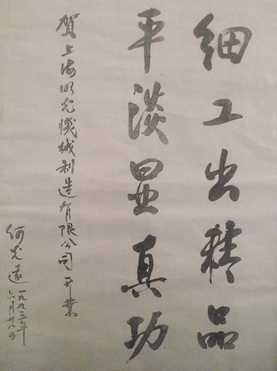 细工出精品
平淡显真功
贺上海明光機械制造有限公司开業
何光遠
一九九三年
六月廿八日